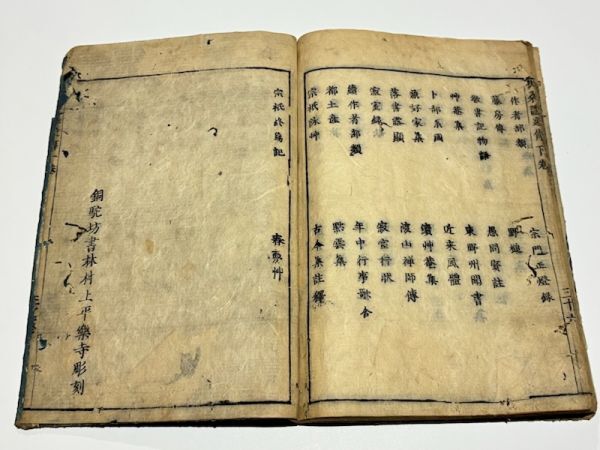 扶桑隱逸傳下卷 三十六
作者部類 宗門正燈錄
藤房傳 野槌
徹書記物語 愚問賢註
艸菴集 東野州聞書
卜部系圖 近來風體
兼好家集 續艸菴集
落書露顯 山禅師傳
寂室錄 寂室行狀
續作者部類 年中行事歌合
都土産 雲集
宗祇詠艸 古今集註釋
宗祇終焉記 春夢艸
銅駝坊書林村上平樂寺彫刻